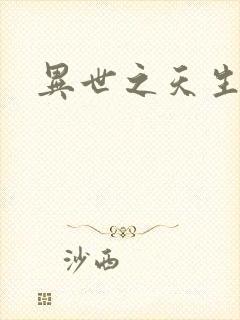 異世之天生
沙西